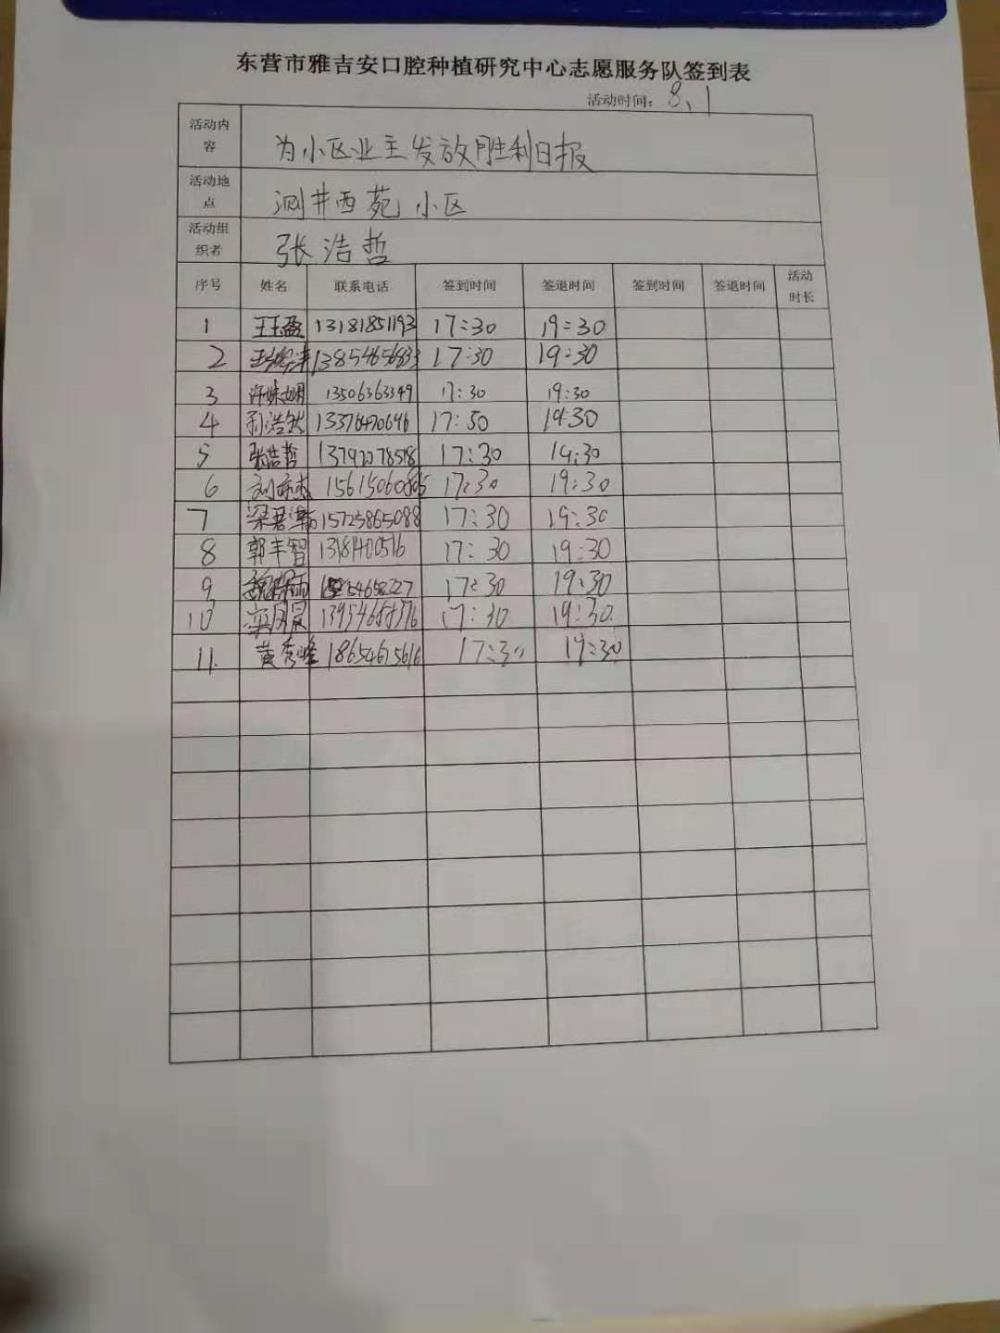 东营市雅吉安口腔种植研究中心志愿服务队签到表
活动时间：8、1
活动内容 为小区业主发放胜利日报
活动地点 测井西苑小区
活动组织者 张浩哲
序号 姓名 联系电话 签到时间 签退时间 签到时间 签退时间 活动时长
1 王玉盈 13181851193 17:30 19:30
2 17:30 19:30
3 13506363349 17:30 19:30
4 孙浩然 17:30 19:30
5 张浩哲 13792078518 17:30 19:30
6 17:30 19:30
7 15725865088 17:30 19:30
8 郭丰智 17:30 19:30
9 17:30 19:30
10 17:30 19:30
11. 黄秀峰 17:30 19:30